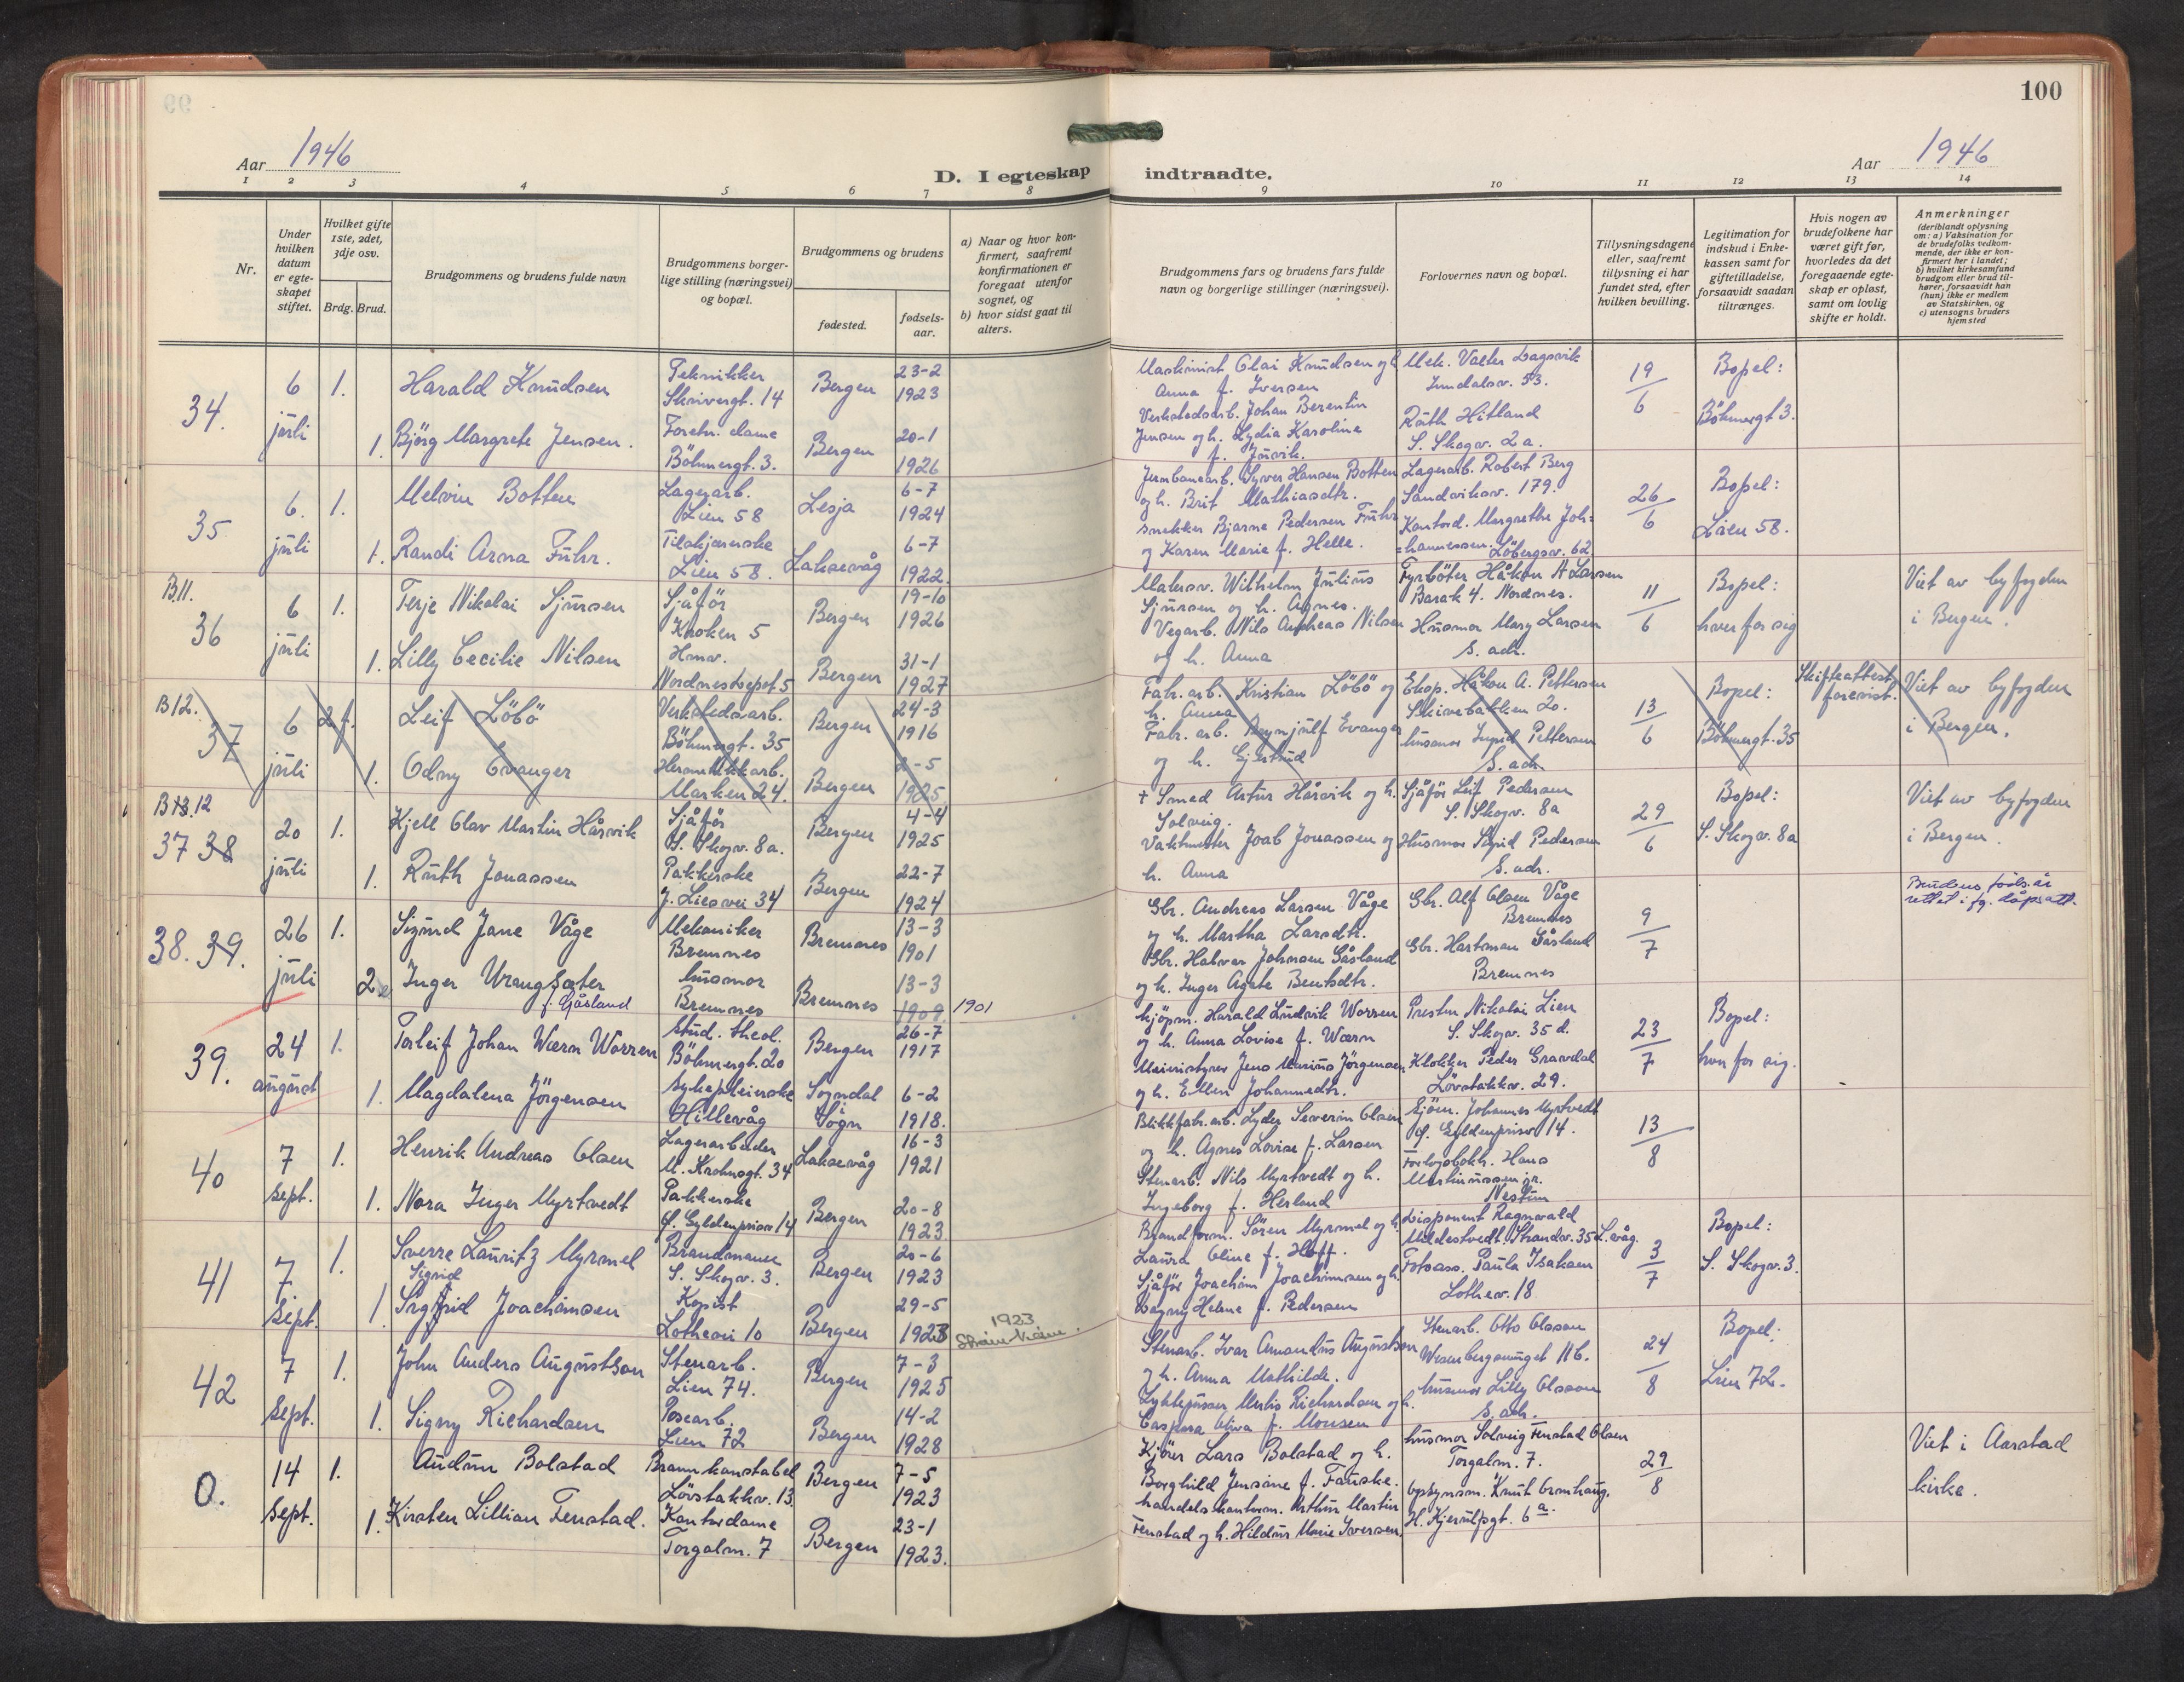 100
Aar 1946
D. I egteskap indtraadte.
Aar 1946
1 2 3 4 5 6 7 8 9 10 11 12 13 14
Nr.
Under hvilken datum er egteskapet stiftet.
Hvilket gifte 1ste, 2det, 3dje osv.
Brdg. Brud.
Brudgommens og brudens fulde navn
Brudgommens borgerlige stilling (næringsvei) og bopæl.
Brudgommens og brudens
fødested.
fødselsaar.
a) Naar og hvor konfirmert, saafremt konfirmationen er foregaat utenfor sognet, og
b) hvor sidst gaat til alters.
Brudgommens fars og brudens fars fulde navn og borgerlige stillinger (næringsvei).
Forlovernes navn og bopæl.
Tillysningsdagene eller, saafremt tillysning ei har fundet sted, efter hvilken bevilling.
Legitimation for indskud i Enkekassen samt for giftetilladelse, forsaavidt saadan tiltrænges.
Hvis nogen av brudefolkene har været gift før, hvorledes da det foregaaende egteskap er opløst, samt om lovlig skifte er holdt.
Anmerkninger (deriblandt oplysning om: a) Vaksination for de brudefolks vedkommende, der ikke er konfirmert her i landet; b) hvilket kirkesamfund brudgom eller brud tilhører, forsaavidt han (hun) ikke er medlem av Statskirken, og c) utensogns bruders hjemsted
34. 6 juli
1. Harald Knudsen Tekniker Skivergt. 14 Bergen 23-2 1923
1. Bjørg Margrete Jensen. Foretn. dame Böhmergt. 3. Bergen 20-1 1926
Maskinist Olai Knudsen og h. Anna f. Iversen
Verkstedsarb. Johan Berentin Jensen og h. Lydia Karoline f. Juvik.
Mek. Valter Dagsvik 53.
Ruth Hitland S. Skogv. 2a.
19/6 Bopel: Böhmergt 3.
35 6. juli
1. Melvin Botten Lagerarb. Lien 58 Lesja 6-7 1924
1. Randi Arna Führ. Tilskjærerske Lien 58. Laksevåg 6-7 1922.
Jernbanearb. Syver Hansen Botten og h. Brit Mathiasdtr.
snekker Bjarne Pedersen Führ og Karen Marie f. Helle.
Lagerarb. Robert Berg Sandviksv. 179.
Kontord. Margrethe Johannessen. Löbergsv. 62
26/6 Bopel: Lien 58.
B11. 36 6 juli
1. Terje Nikolai Sjursen Sjåför Kroken 5 Bergen 19-10 1926
1. Lilly Cecilie Nilsen Hmv. Nordnesdepot 5 Bergen 31-1 1927
Malersv. Wilhelm Julius Sjursen og h. Agnes.
Vegarb. Nils Andreas Nilsen og h. Anna
Fyrböter Håkon A Larsen Barak 4. Nordnes.
Husmor Mary Larsen S. adr.
11/6 Bopel: hver for sig
Viet av byfogden i Bergen.
B12. 37 6 juli
2 f. Leif Löbö Verkstedsarb. Böhmergt. 35 Bergen 24-3 1916
1. Odny Evanger Hermetikkarb. Marken 24. Bergen 2-5 1925
Fabr. arb. Kristian Löbö og h. Anna
Fabr. arb. Brynjulf Evanger og h. Gjertrud
Eksp. Håkon A. Pettersen Skivebakken 20.
husmor Ingrid Pettersen S. adr.
13/6 Bopel: Böhmergt. 35
Skifteattest forevist.
Viet av byfogden i Bergen.
B13. 12 37 38 20 juli
1. Kjell Olav Martin Hårvik Sjåför S. Skogv. 8a. Bergen 4-4 1925
1. Ruth Jonassen Pakkerske J. Liesvei 34 Bergen 22-7 1924
+ Smed Artur Hårvik og h. Solveig.
Vaktmester Joab Jonassen og h. Anna
Sjåför Leif Pedersen S. Skogv. 8a
Husmor Sigrid Pedersen S. adr.
29/6 Bopel: S. Skogv. 8a
Viet av byfogden i Bergen.
38. 39. 26 juli
1. Sigund Jane Våge Mekaniker Bremnes Bremnes 13-3 1901
2. Inger Vrangsæter f. Gåsland husmor Bremnes Bremnes 13-3 1909 1901
Gbr. Andreas Larsen Våge og h. Martha Larsdtr.
Gbr. Halvor Johnsen Gåsland og h. Inger Agate Bentsdtr.
Gbr. Alf Olsen Våge Bremnes
Gbr. Hartman Gåsland Bremnes
9/7
Brudens föds. år rettet i fg. dåpsatt.
39. 24 august
1. Torleif Johan Wærn Worren stud. theol. Böhmergt. 20 Bergen 26-7 1917
1. Magdalena Jörgensen sykepleierske Hillevåg Sogndal Sogn 6-2 1918.
kjöpm. Harald Ludvik Worren og h. Anna Lovise f. Wærn
Meieristyrer Jens Marius Jörgensen og h. Ellen Johannedtr.
Presten Nikolai Lien S. Skogv. 35 d.
Klokker Peder Gravdal Lövstakkv. 29.
23/7 Bopel: hver for sig.
40 7 sept.
1. Henrik Andreas Olsen Lagerarbeider M. Krohnsgt. 34 Laksevåg 16-3 1921
1. Nora Inger Myrtvedt Pakkerske G. Gyldenprisv 14 Bergen 20-8 1923
Blikkfabr. arb. Lyder Severin Olsen og h. Agnes Lovise f. Larsen
Stenarb. Nils Myrtvedt og h. Ingeborg f. Herland
Sjöm. Johannes Myrtvedt G. Gyldenprisv 14.
Hans Martinussen jr. Nestun
13/8
41 7 sept.
1. Sverre Lauritz Myrmel Brandmann S. Skogv. 3. Bergen 20-6 1923
1. Sigrid Sigfrid Joachimsen Kopist Lothevei 10 Bergen 29-5 1923
1923
Brandform. Sören Myrmel og h. Laura Oline f. Hoff.
Sjåför Joachim Joachimsen og h. Dagny Helene f. Pedersen
Disponent Ragnvald Mildestvedt. Strandv. 35 L.våg.
Fotoass. Paula Isaksen Lothev. 18
3/7 Bopel: S. Skogv. 3.
42 7 sept.
1. John Anders Augustson Stenarb. Lien 74. Bergen 7-3 1925
1. Signy Richardsen Posearb. Lien 72 Bergen 14-2 1928
Stenarb. Ivar Amandus Augustson og h. Anna Mathilde.
Richardsen og h. Caspara Oliva f. Monsen
Stenarb. Otto Olsson 11 b.
husmor Lilly Olsson S. adr.
24/8 Bopel: Lien 72.
0. 14 sept.
1. Audun Bolstad Brannkonstabel Lövstakkv. 13 Bergen 7-5 1923
1. Kirsten Lillian Fenstad. Kontordame Torgalm. 7 Bergen 23-1 1923.
Kjörer Lars Bolstad og h. Borghild Jensine f. Fauske.
handelskontorm. Arthur Martin Fenstad og h. Hildur Marie Iversen.
husmor Solveig Fenstad Olsen Torgalm. 7.
opsynsm. Knut Ormhaug. H. Kjerulfsgt. 6 a.
29/8
Viet i Aarstad kirke.